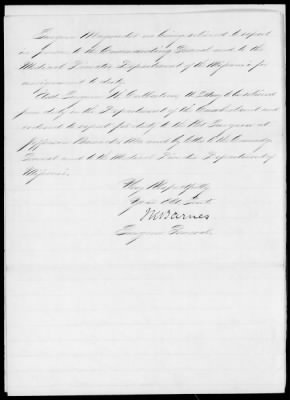 Surgeon Magruder on being relieved to report
in person to the Commanding General and to the
Medical Director Department of the Missouri for
assignment to duty.
Asst Surgeon H. Culbertson, U.S. Army to be relieved
from duty in the Department of the Cumberland and
ordered to report for duty to the Post Surgeon at
Jefferson Barracks, Mo and by letter to the Comdg
General and to the Medical Director Department of
Missouri.
Very Respectfully
Your Obt Servt
J K Barnes
Surgeon General